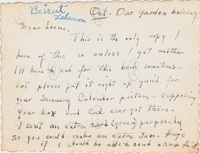 Beirut
Lebanon
Oct. Our garden
Dear
This is the only copy I
have of this so unless I get another
I'll have to ask for this back sometime
but please put it right up
your January Calendar picture - supposing
your box and Cal ever got there.
I sent an extra (green) purposely
so you could make an extra
if I should be able to send